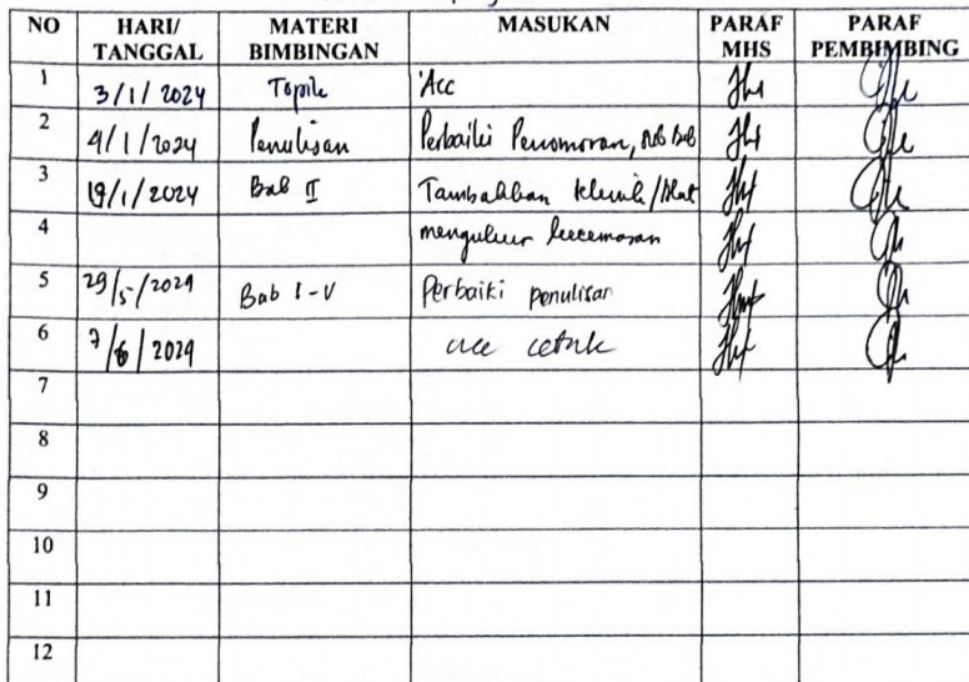 NO HARI/ TANGGAL MATERI BIMBINGAN MASUKAN PARAF MHS PARAF PEMBIMBING
1 3/1/2024 Topik Acc
2 9/1/2024 Penulisan Perbaiki Penomoran, sub bab
3 19/1/2024 Bab II Tambahkan
4 mengukur kecemasan
5 29/5/2024 Bab I-V Perbaiki penulisan
6 7/6/2024 acc cetak
7
8
9
10
11
12